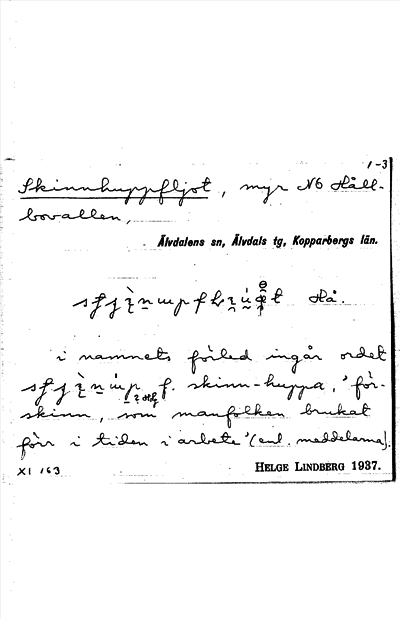 1-3
Skinnhuppfljot, myr NO Håll-
bovallen,
Älvdalens sn, Älvdals tg, Kopparbergs län.
Hå.
i namnets förled ingår ordet
f. skinn-huppa, 'för-
skinn, som manfolken brukat
förr i tiden i arbete' (enl. meddelarna).
XI 163
HELGE LINDBERG 1937.